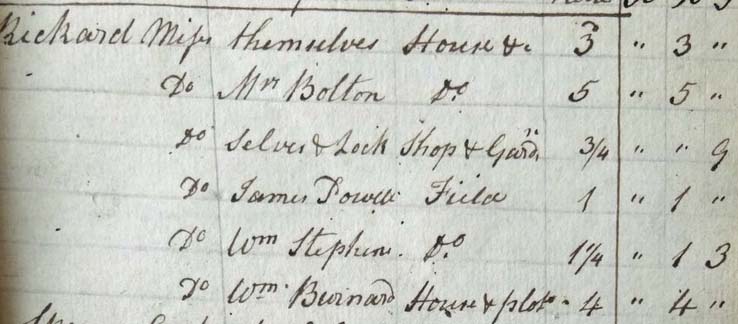 Rickard Miss themselves House & 3 " 3 "
Do Mrs Bolton Do 5 " 5 "
Do Selves & Lock Shop & Gard.n 3/4 " " 9
Do James Powell Field 1 " 1 "
Do Wm Stephens Do 1 1/4 " 1 3
Do Wm Burnard House & plot 4 " 4 "